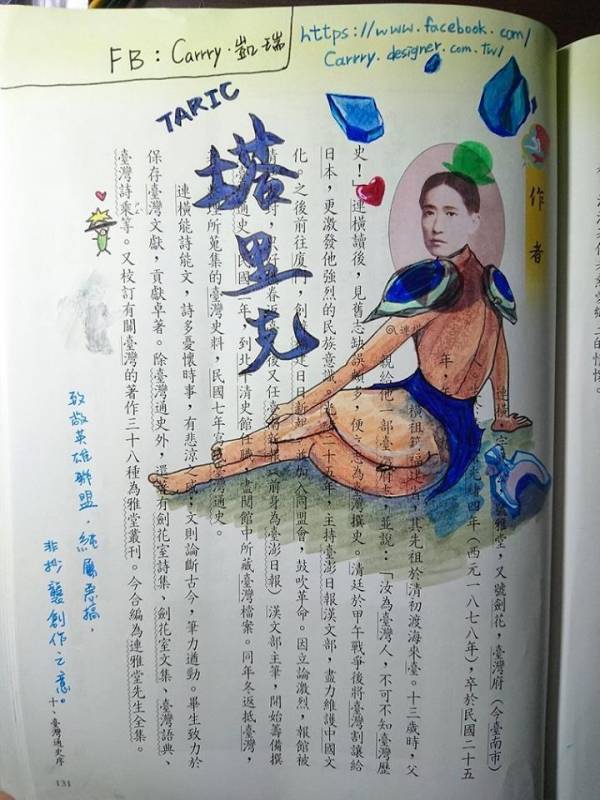 FB：Carrry.凱瑞
https://www.facebook.com/
Carrry.designer.com.tw/
TARIC
塔里克
作者
連橫
連橫，字 雅堂，又號劍花，臺灣府（今臺南市）
緒四年（西元一八七八年），卒於民國二十五
年，
橫祖籍福建 ，其先祖於清初渡海來臺。十三歲時，父
親給他一部臺灣府志，並說：「汝為臺灣人，不可不知臺灣歷
史！」連橫讀後，見舊志缺誤頗多，便立志為臺灣撰史。清廷於甲午戰爭後將臺灣割讓給
日本，更激發他強烈的民族意識。 二十五年，主持臺澎日報漢文部，盡力維護中國文
化。之後前往廈門，創 建日日新報，並加入同盟會，鼓吹革命。因立論激烈，報館被
後又任臺南新報（前身為臺澎日報）漢文部主筆，開始籌備撰
通史。民國 年，到北平清史館任職，盡閱館中所藏臺灣檔案。同年冬返抵臺灣，
理所蒐集的臺灣史料，民國七年寫 臺灣通史。
連橫能詩能文，詩多憂懷時事，有悲涼之感；文則論斷古今，筆力遒勁。畢生致力於
保存臺灣文獻，貢獻卓著。除臺灣通史外，還著有劍花室詩集、劍花室文集、臺灣語典、
臺灣詩乘等。又校訂有關臺灣的著作三十八種為雅堂叢刊。今合編為連雅堂先生全集。
致敬英雄聯盟，純屬惡搞，
非抄襲創作之意。
十、臺灣通史序
131